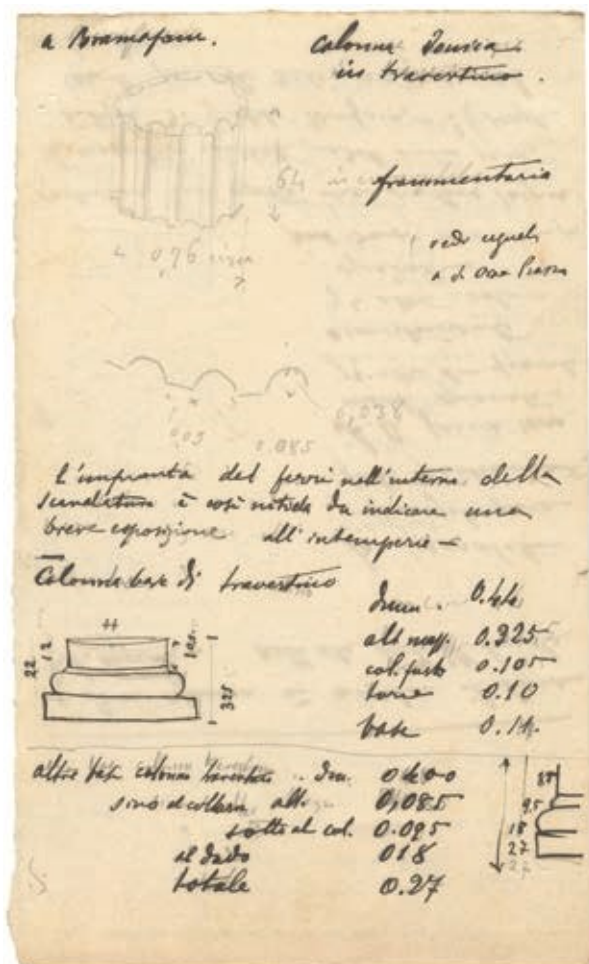 a Bramafam.
Colonna Ionica
in travertino.
64
frammentaria
076 circa
vedi uguali
a d
0,038
003
0.085
L'impronta dei ferri nell'interno della
scanalatura è così nitida da indicare una
breve esposizione all'intemperie –
Colonna base di travertino
44
22
12
325
diam. 0.44
alt mass. 0.325
col. fusto 0.105
toric 0.10
base 0.1
altre basi colonna travertino . diam. 0400
sino al collare alt. 0,085
sotto al col. 0.095
al dado 018
totale 0.27
85
95
18
27
27